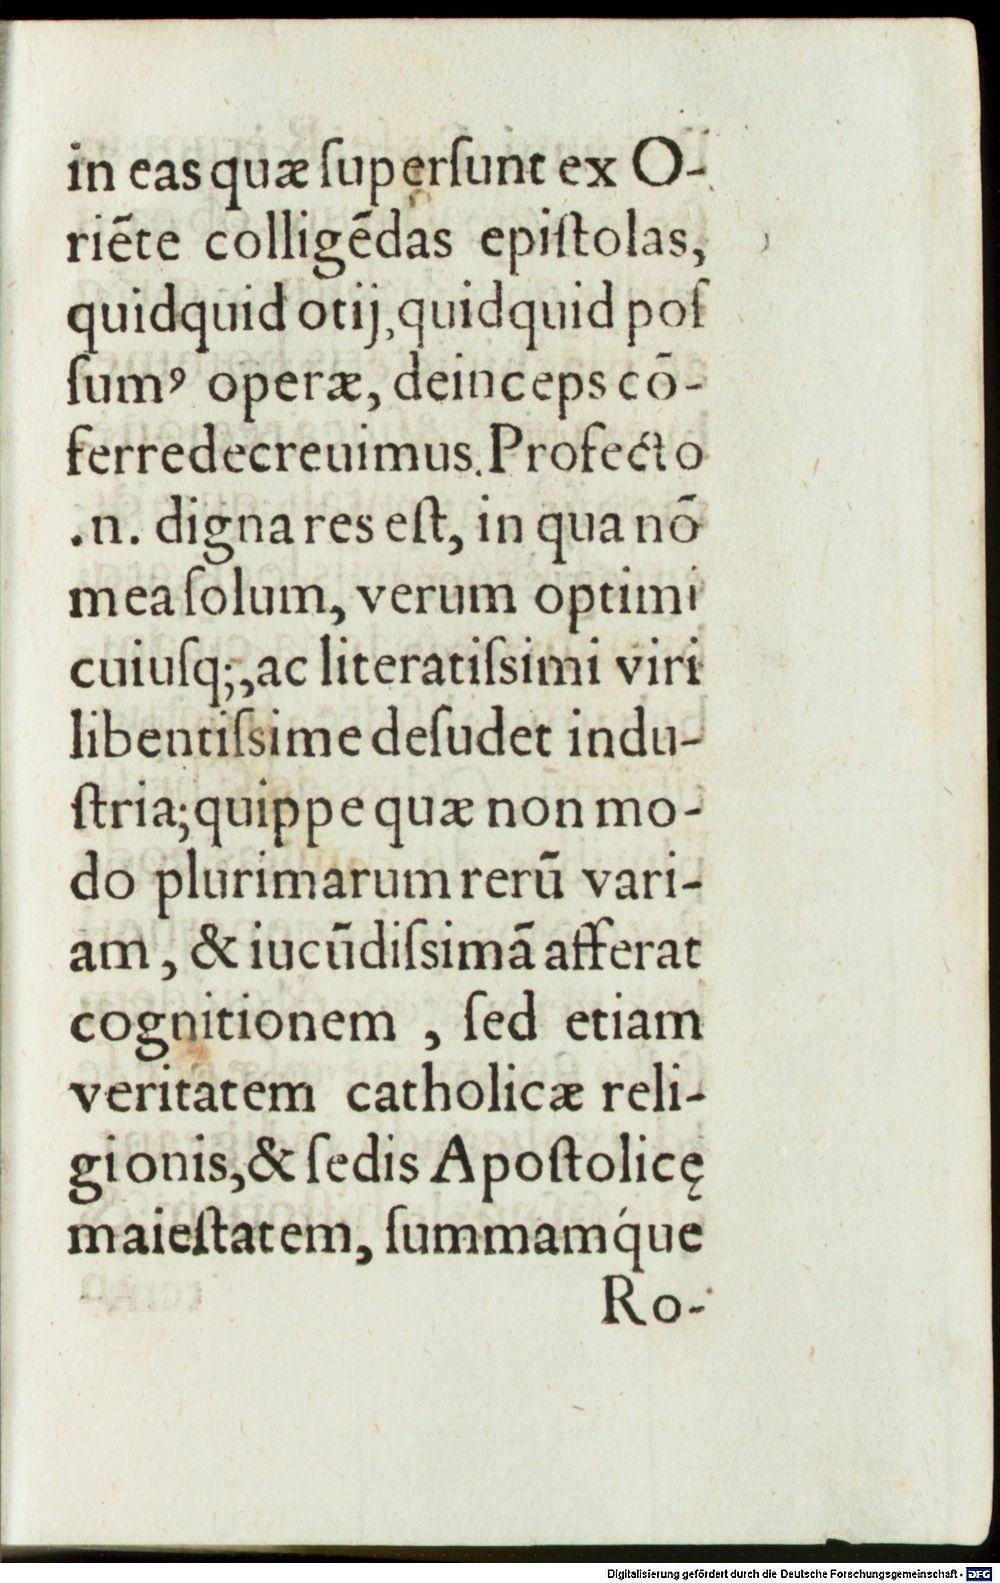 in eas quæ ſuperſunt ex O-
riẽte colligẽdas epiſtolas,
quidquid otij, quidquid poſ
ſumꝰ operæ, deinceps cõ-
ferre decreuimus. Profecto
.n. digna res eſt, in qua nõ
mea ſolum, verum optimi
cuiuſq;, ac literatiſsimi viri
libentiſsime deſudet indu-
ſtria; quippe quæ non mo-
do plurimarum rerũ vari-
am, & iucũdiſsimã afferat
cognitionem , ſed etiam
veritatem catholicæ reli-
gionis, & ſedis Apoſtolicę
maieſtatem, ſummamq́ue
Ro-
Digitalisierung gefördert durch die Deutsche Forschungsgemeinschaft - DFG